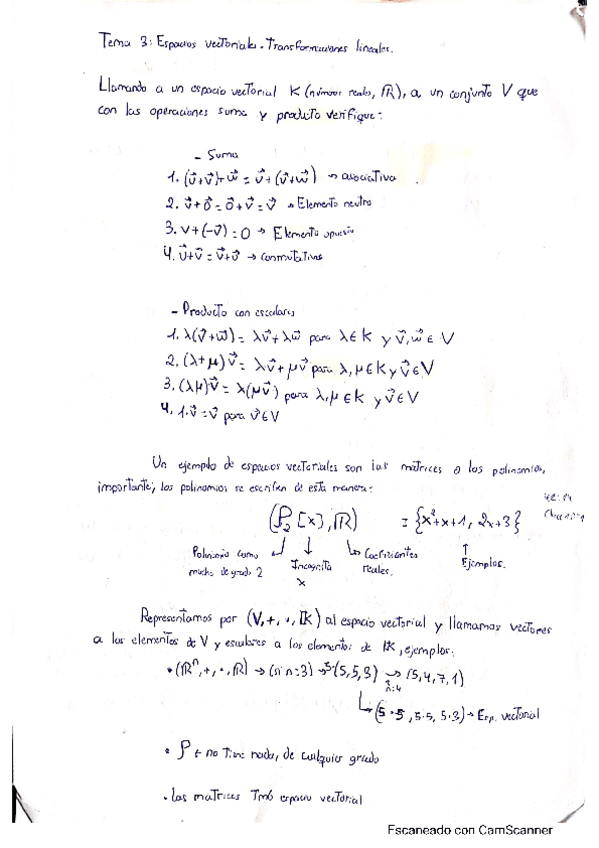 Tema 3: Espacios vectoriales. Transformaciones lineales.
Llamando a un espacio vectorial K (números reales, ℝ), a un conjunto V que
con las operaciones suma y producto verifique:
- Suma
1. (u⃗+v⃗)+w⃗ = u⃗+(v⃗+w⃗) → asociativa
2. v⃗+0⃗ = 0⃗+v⃗ = v⃗ → Elemento neutro
3. v+(-v⃗) = 0 → Elemento opuesto
4. u⃗+v⃗ = v⃗+u⃗ → conmutativa
- Producto con escalares
1. λ(v⃗+w⃗) = λv⃗+λw⃗ para λ∈K y v⃗,w⃗∈V
2. (λ+μ)v⃗ = λv⃗+μv⃗ para λ,μ∈K y v⃗∈V
3. (λμ)v⃗ = λ(μv⃗) para λ,μ∈K y v⃗∈V
4. 1·v⃗ = v⃗ para v⃗∈V
Un ejemplo de espacios vectoriales son las matrices o los polinomios,
importante, los polinomios se escriben de esta manera:
(P₂[x], ℝ) = {x²+x+1, 2x+3}
Polinomio como mucho de grado 2
Incognita x
Coeficientes reales.
Ejemplos.
Representamos por (V,+,·,K) al espacio vectorial y llamamos vectores
a los elementos de V y escalares a los elementos de K, ejemplos:
• (ℝⁿ,+,·,ℝ) → (si n=3) → 5·(5,5,3) → (5,4,7,1)
n=4
(5·5, 5·5, 5·3) → Esp. vectorial
• P ← no tiene nada, de cualquier grado
• Las matrices Tmb espacio vectorial
Escaneado con CamScanner